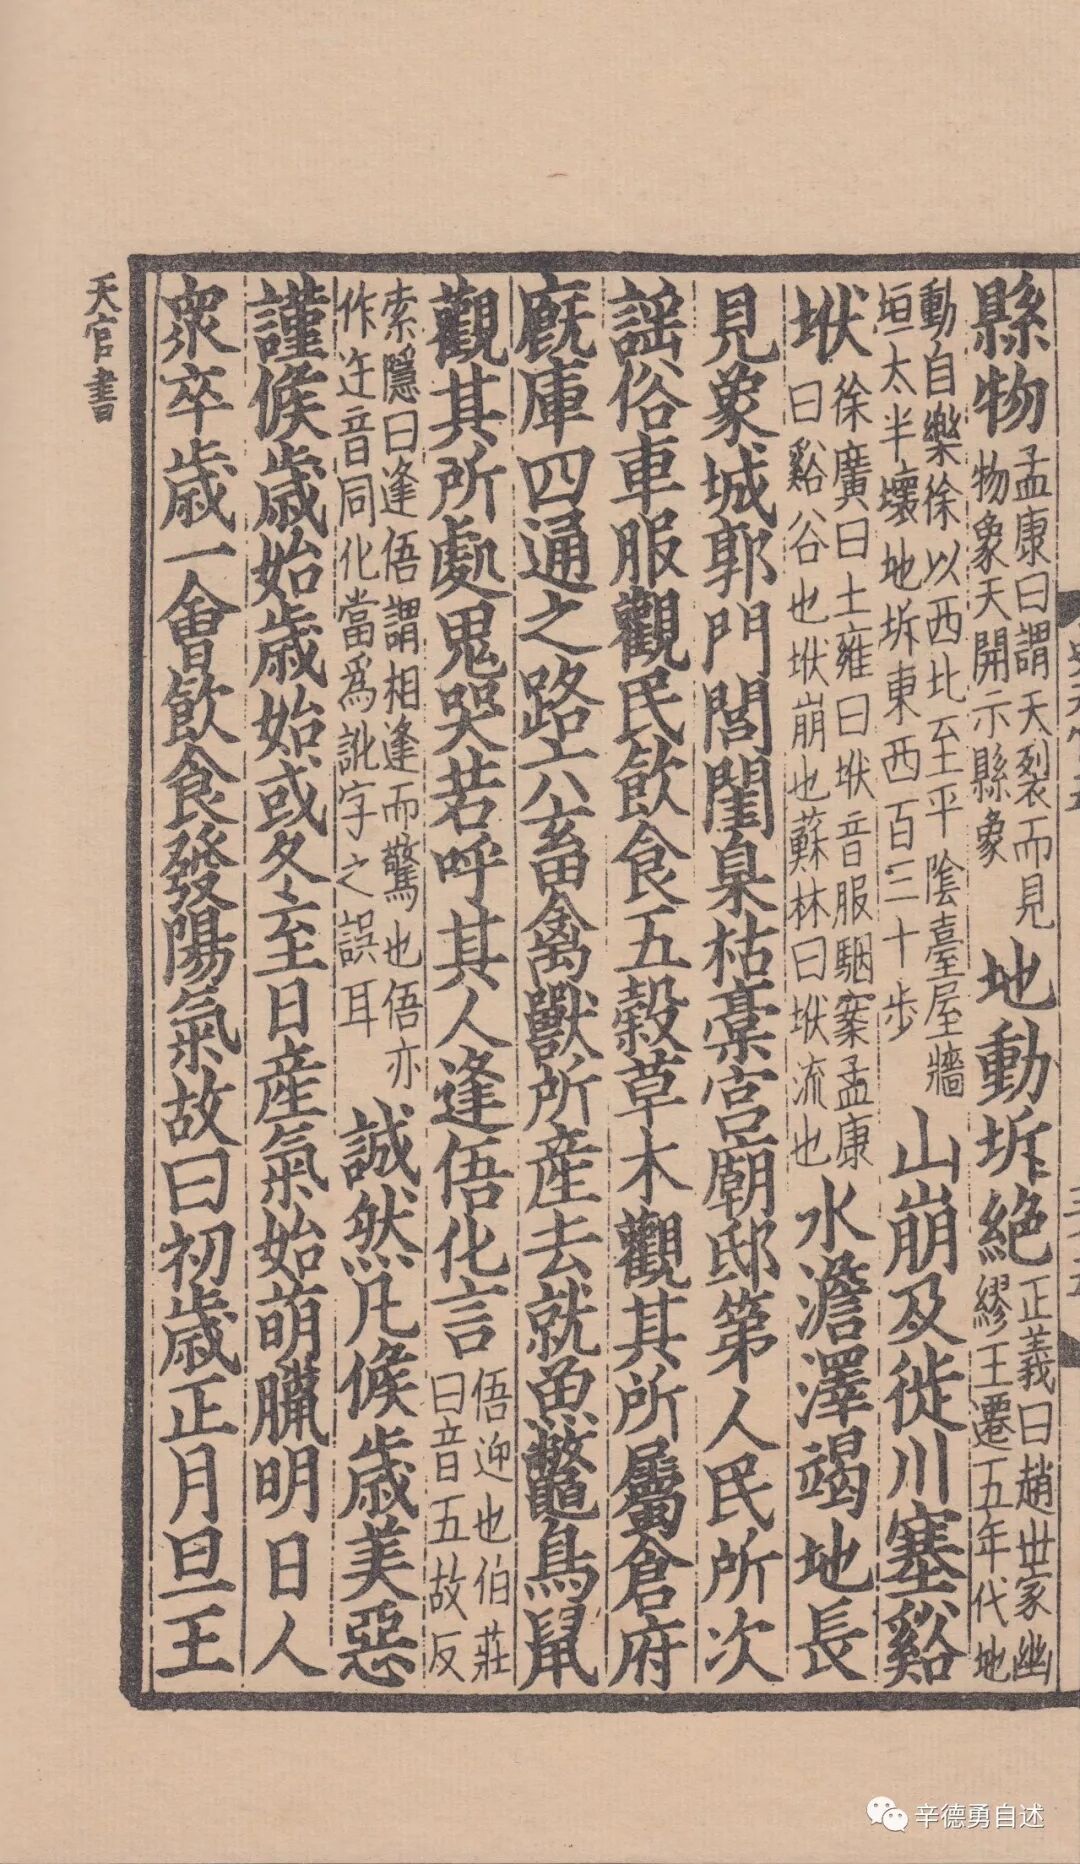 縣物孟康曰謂天裂而見物象天開示縣象地動坼絶正義曰趙世家幽繆王遷五年代地
動自樂徐以西北至平陰臺屋牆垣太半壞地坼東西百三十步山崩及徙川塞谿
垘徐廣曰土雍曰垘音服駰案孟康曰谿谷也垘崩也蘇林曰垘流也水澹澤竭地長
見象城郭門閭閨臬枯稾宫廟邸第人民所次
謡俗車服觀民飲食五穀草木觀其所屬倉府
廐庫四通之路六畜禽獸所産去就魚鼈鳥鼠
觀其所處鬼哭若呼其人逢俉化言俉迎也伯莊曰音五故反
索隱曰逢俉謂相逢而驚也俉亦作迕音同化當爲訛字之誤耳誠然凡候歳美惡
謹候歳始歳始或冬至日産氣始萌臘明日人
衆卒歳一會飲食發陽氣故曰初歳正月旦王
天官書
辛德勇自述